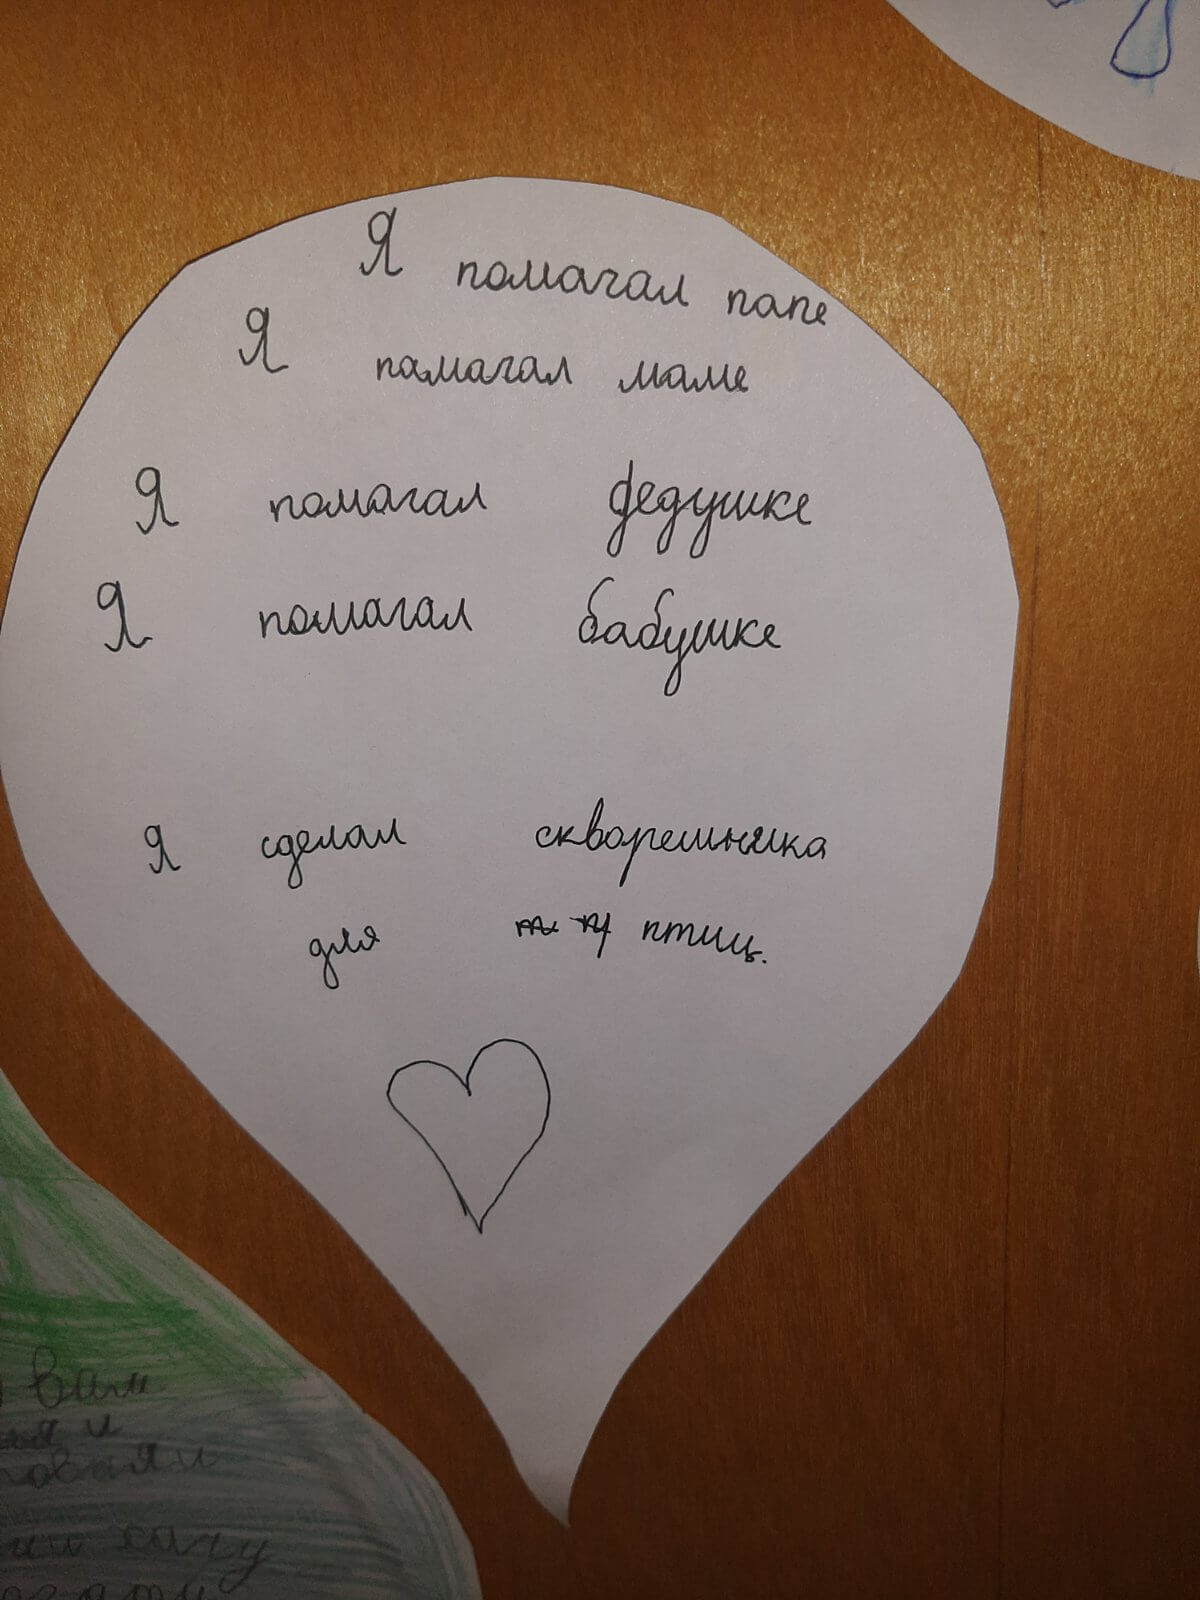 Я помагал папе
Я памагал маме
Я помагал дедушке
Я помагал бабушке
Я сделал скворешника
для птиц.
вам
и
хачу